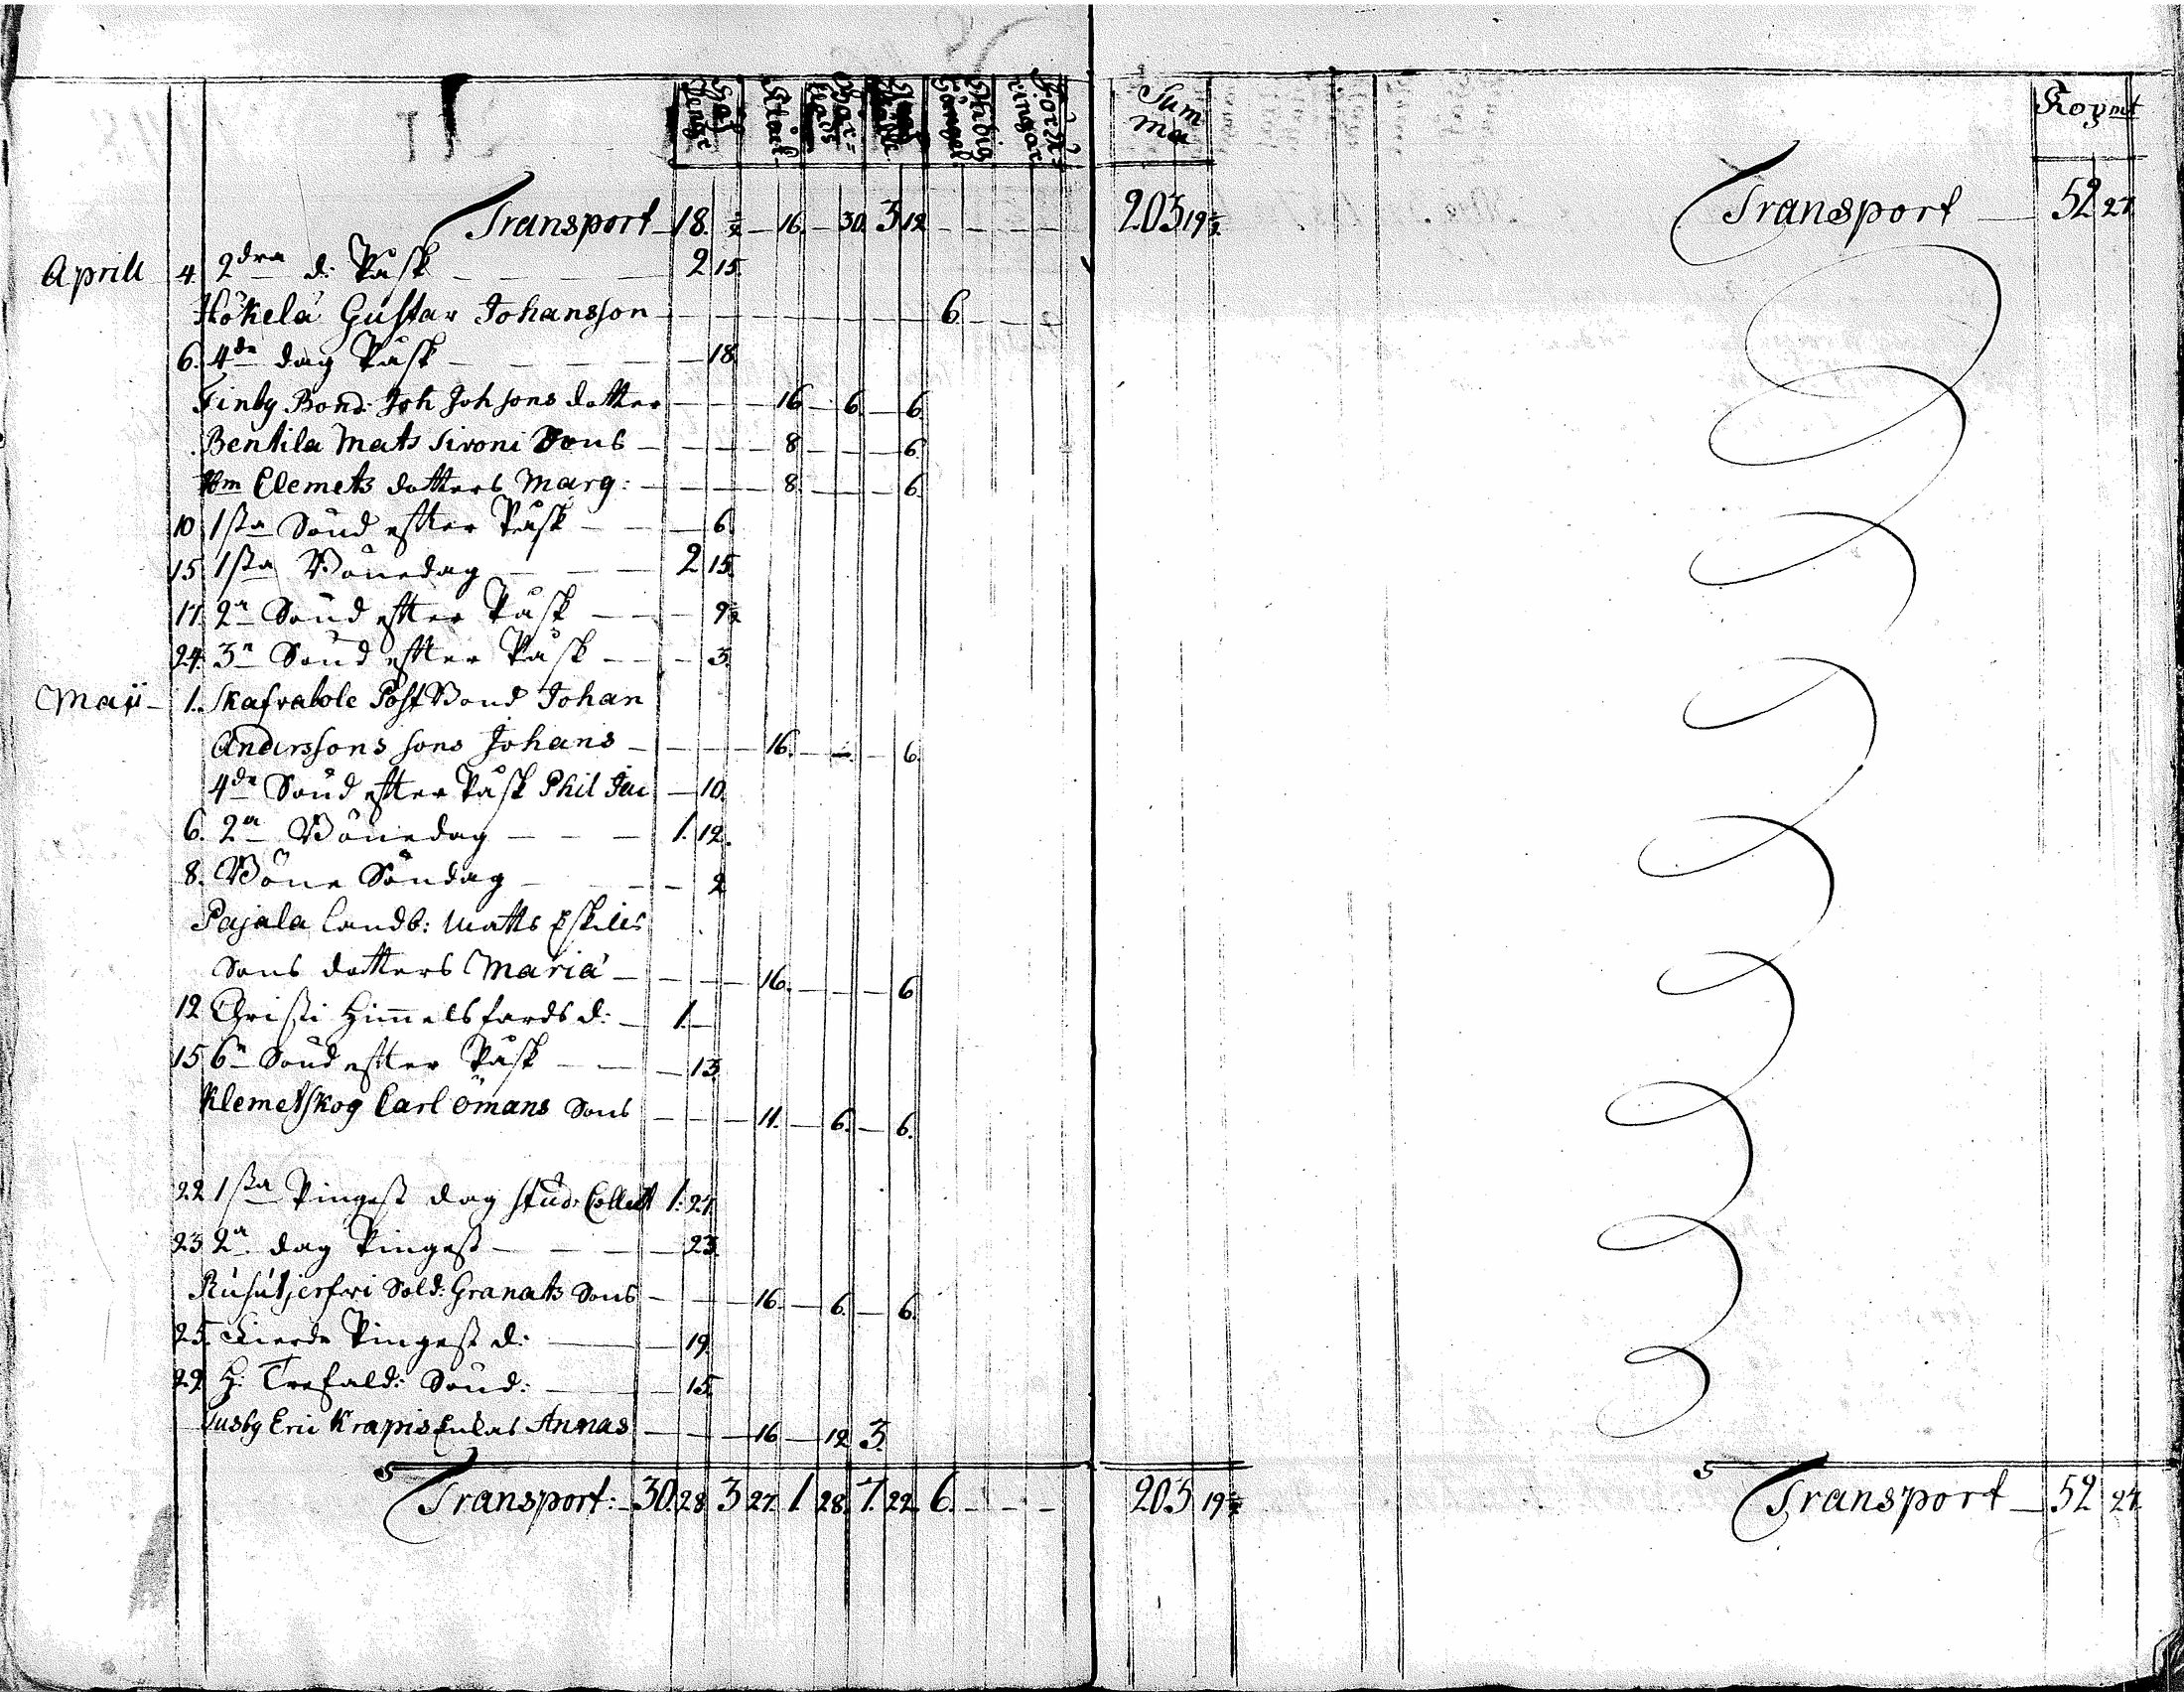 Håf Penger Klåck Bår= klädr Ständig Görngel Förähringar Summa Koymt
Transport 18. ½ 16. 30. 3 12 203 19½ Transport 52 27
Aprill 4. 2dra d: Påsk 2 15.
Hökelä Gustav Johansson 6.
6. 4de dag Påsk 18.
Finby Bond: Joh Johsons dotter 16 6. 6.
Bentila Mats Sironi Sons 8 6.
Clemets dotters Marg: 8. 6.
10 1sta Sönd efter Påsk 6.
15 1sta Bönedag 2 15.
17. 2a Sönd efter Påsk 9½
24. 3a Sönd efter Påsk 3.
Maji 1. Skafvabole Post Bond Johan
Anderssons sons Johans 16. 6.
4de Sönd efter Påsk Phil Jac 10.
6. 2a Bönedag 1. 12.
8. Böne Söndag 2
Pajala Landb: Matts Eskils
Sons dotters Maria 16. 6
12 Christi Himmelsfards d: 1.
15 6a Sönd efter Påsk 13.
Klemetskog Carl Ömans Sons 11. 6. 6.
22 1sta Pingest dag stud: Collect 1. 27.
23 2a dag Pingest 23.
Sold: Granats Sons 16. 6. 6.
25. Fierde Pingest d: 19.
29 H: Trefald: Sönd: 15.
Susby Eric Krapis Enkas Annas 16 12 3.
Transport: 30. 28. 3 27. 1 28. 7. 22. 6. 203 19½ Transport 52 27.